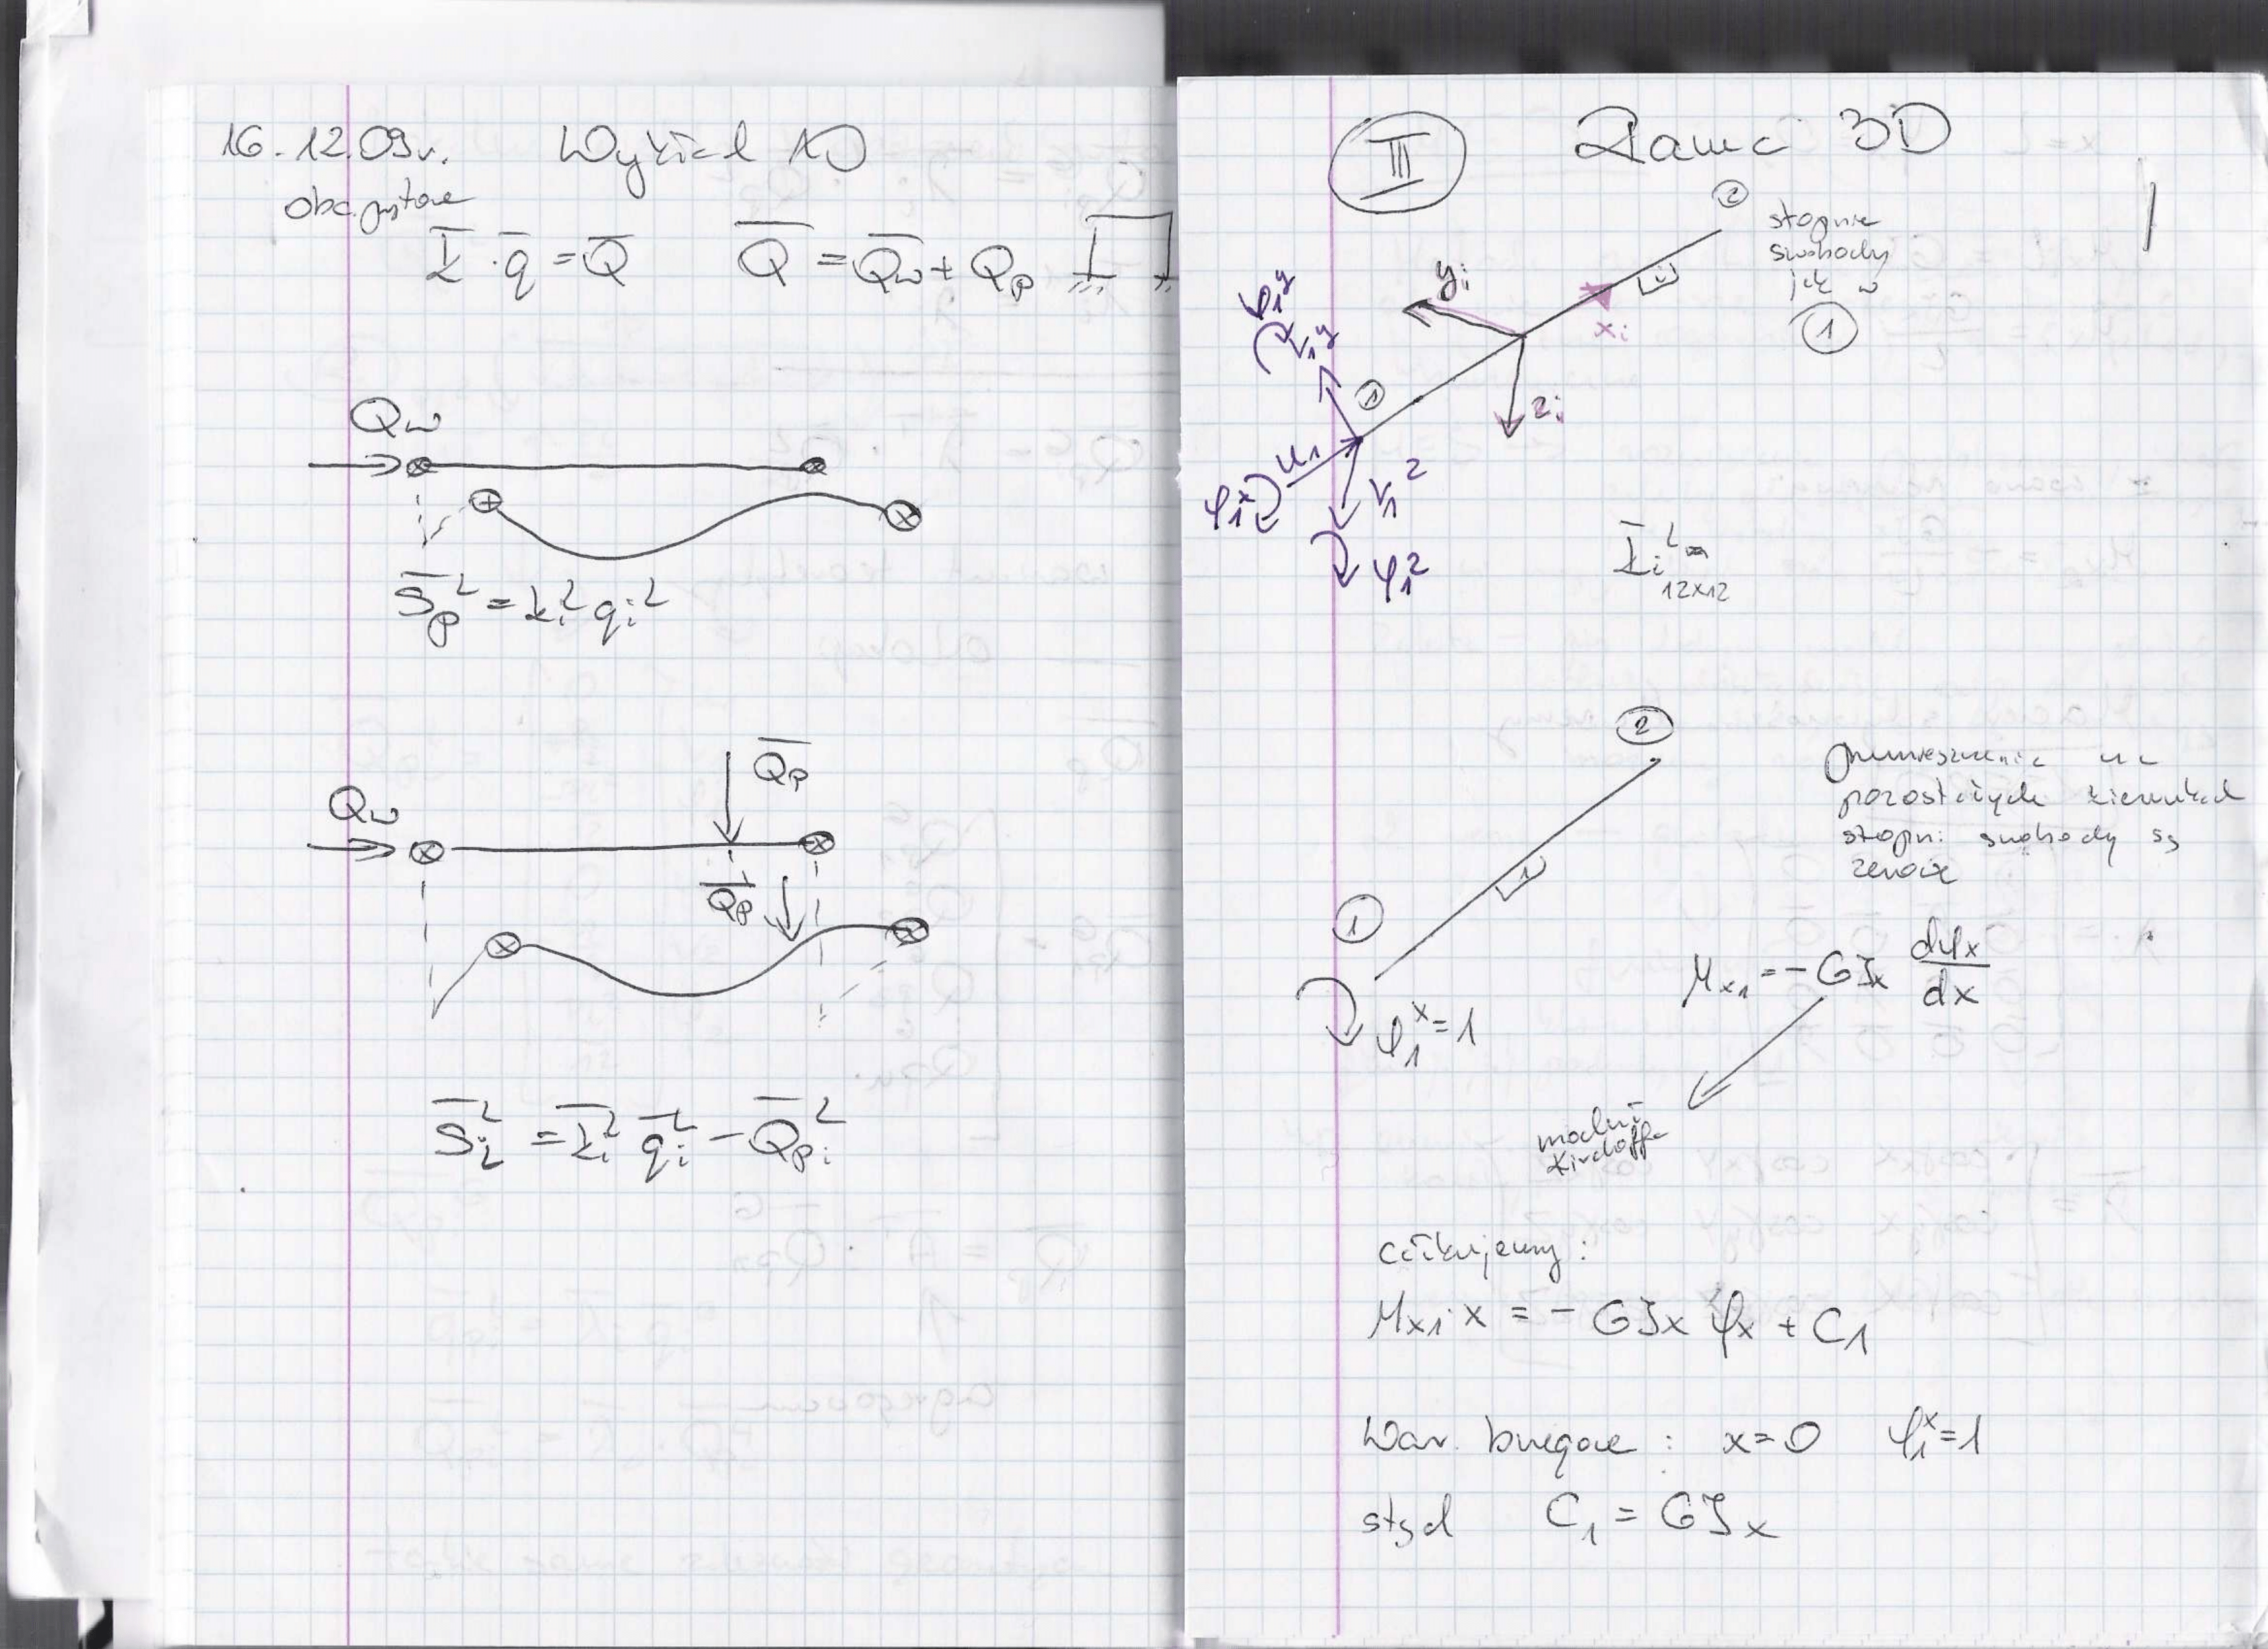 16.12.09r. Wykład 10
K̄ · q̄ = Q̄ Q̄ = Q̄w + Qp
Qw
S̄p^L = ki^L qi^L
Q̄p
Qw
Q̄p
S̄i^L = K̄i^L q̄i^L − Q̄pi^L
III Rama 3D
2
stopnie
swobody
jak w
1
yi
xi
zi
i
1
φ1^y
v1^y
u1
φ1^x
v1^z
φ1^z
K̄i^L =
12x12
2
przemieszczenia na
pozostałych kierunkach
stopni swobody są
zerowe
1
φ1^x = 1
Mx1 = −GJx dφx/dx
moduł
Kirchoffa
całkujemy :
Mx1·x = − GJx φx + C1
War. brzegowe : x=0 φ1^x=1
stąd C1 = GJx